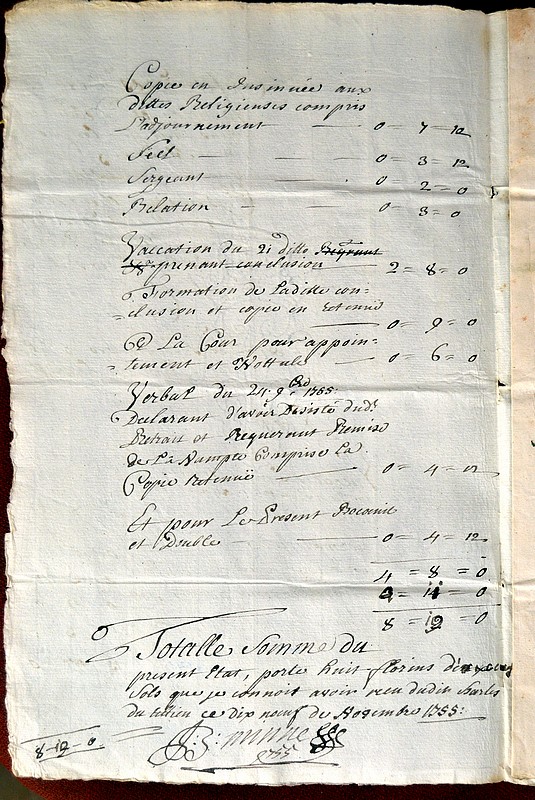 Copie en Insinuée aux
dittes Religieuses compris
L'adjournement 0 = 7 = 12
Seel 0 = 3 = 12
Sergeant 0 = 2 = 0
Relation 0 = 3 = 0
Vaccation du 21 ditto
prenant conclusion 2 = 8 = 0
Formation de Laditte con=
=clusion et copie en retenue 0 = 9 = 0
La Cour pour appoin=
=tement et Nottule 0 = 6 = 0
Verbal du 24: 9bre 1755:
Declarant d'avoir Desisté dudt
Retrait et Requerant Remise
de La Nampte Comprise La
Copie retenuë 0 = 4 = 12
Et pour Le Present
et Double 0 = 4 = 12
4 = 8 = 0
4 = 11 = 0
8 = 19 = 0
Totalle Somme du
present Etat, porte huit florins
Sols que je connoit avoir receu dudit Charles
du ce dix neuf de Novembre 1755:
8-19-0
1755